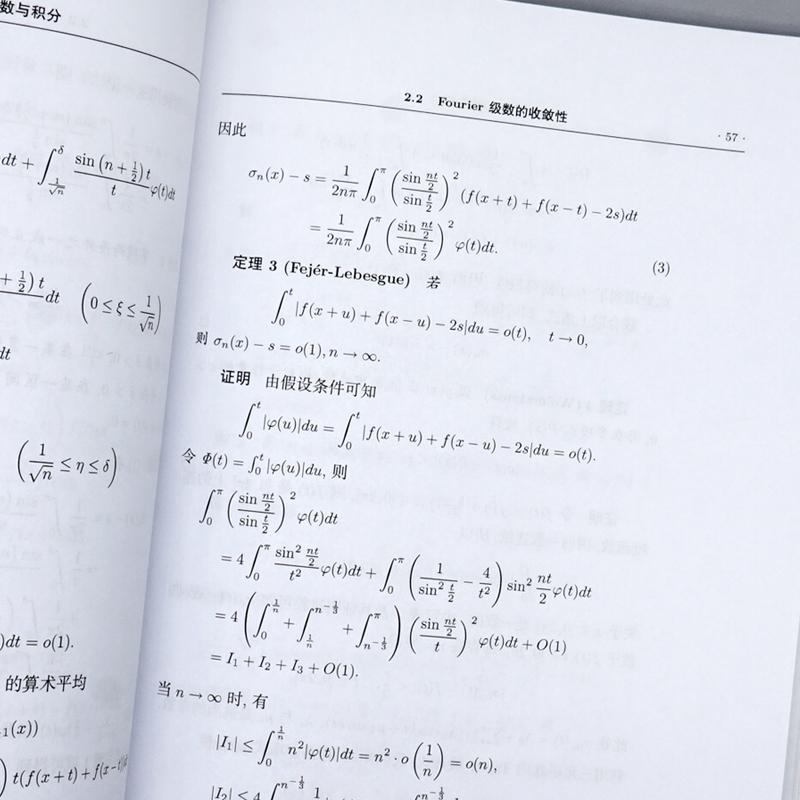 数与积分
dt + \int_{\frac{1}{\sqrt{n}}}^{\delta} \frac{\sin(n+\frac{1}{2})t}{t} φ(t)dt
+ \frac{1}{2})t dt (0 ≤ ξ ≤ \frac{1}{\sqrt{n}})
dt
(\frac{1}{\sqrt{n}} ≤ η ≤ δ)
)dt = o(1).
的算术平均
_{-1}(x))
) t(f(x + t) + f(x − t)
2.2 Fourier 级数的收敛性 · 57 ·
因此
σ_n(x) − s = \frac{1}{2nπ} \int_0^π (\frac{\sin\frac{nt}{2}}{\sin\frac{t}{2}})^2 (f(x + t) + f(x − t) − 2s)dt
= \frac{1}{2nπ} \int_0^π (\frac{\sin\frac{nt}{2}}{\sin\frac{t}{2}})^2 φ(t)dt. (3)
定理 3 (Fejér-Lebesgue) 若
\int_0^t |f(x + u) + f(x − u) − 2s|du = o(t), t → 0,
则 σ_n(x) − s = o(1), n → ∞.
证明 由假设条件可知
\int_0^t |φ(u)|du = \int_0^t |f(x + u) + f(x − u) − 2s|du = o(t).
令 Φ(t) = \int_0^t |φ(u)|du, 则
\int_0^π (\frac{\sin\frac{nt}{2}}{\sin\frac{t}{2}})^2 φ(t)dt
= 4 \int_0^π \frac{\sin^2\frac{nt}{2}}{t^2} φ(t)dt + \int_0^π (\frac{1}{\sin^2\frac{t}{2}} − \frac{4}{t^2}) \sin^2\frac{nt}{2} φ(t)dt
= 4 (\int_0^{\frac{1}{n}} + \int_{\frac{1}{n}}^{n^{-\frac{1}{3}}} + \int_{n^{-\frac{1}{3}}}^π) (\frac{\sin\frac{nt}{2}}{t})^2 φ(t)dt + O(1)
= I_1 + I_2 + I_3 + O(1).
当 n → ∞ 时, 有
|I_1| ≤ \int_0^{\frac{1}{n}} n^2|φ(t)|dt = n^2 · o(\frac{1}{n}) = o(n),
|I_2| ≤ 4 \int^{n^{-\frac{1}{3}}} 1